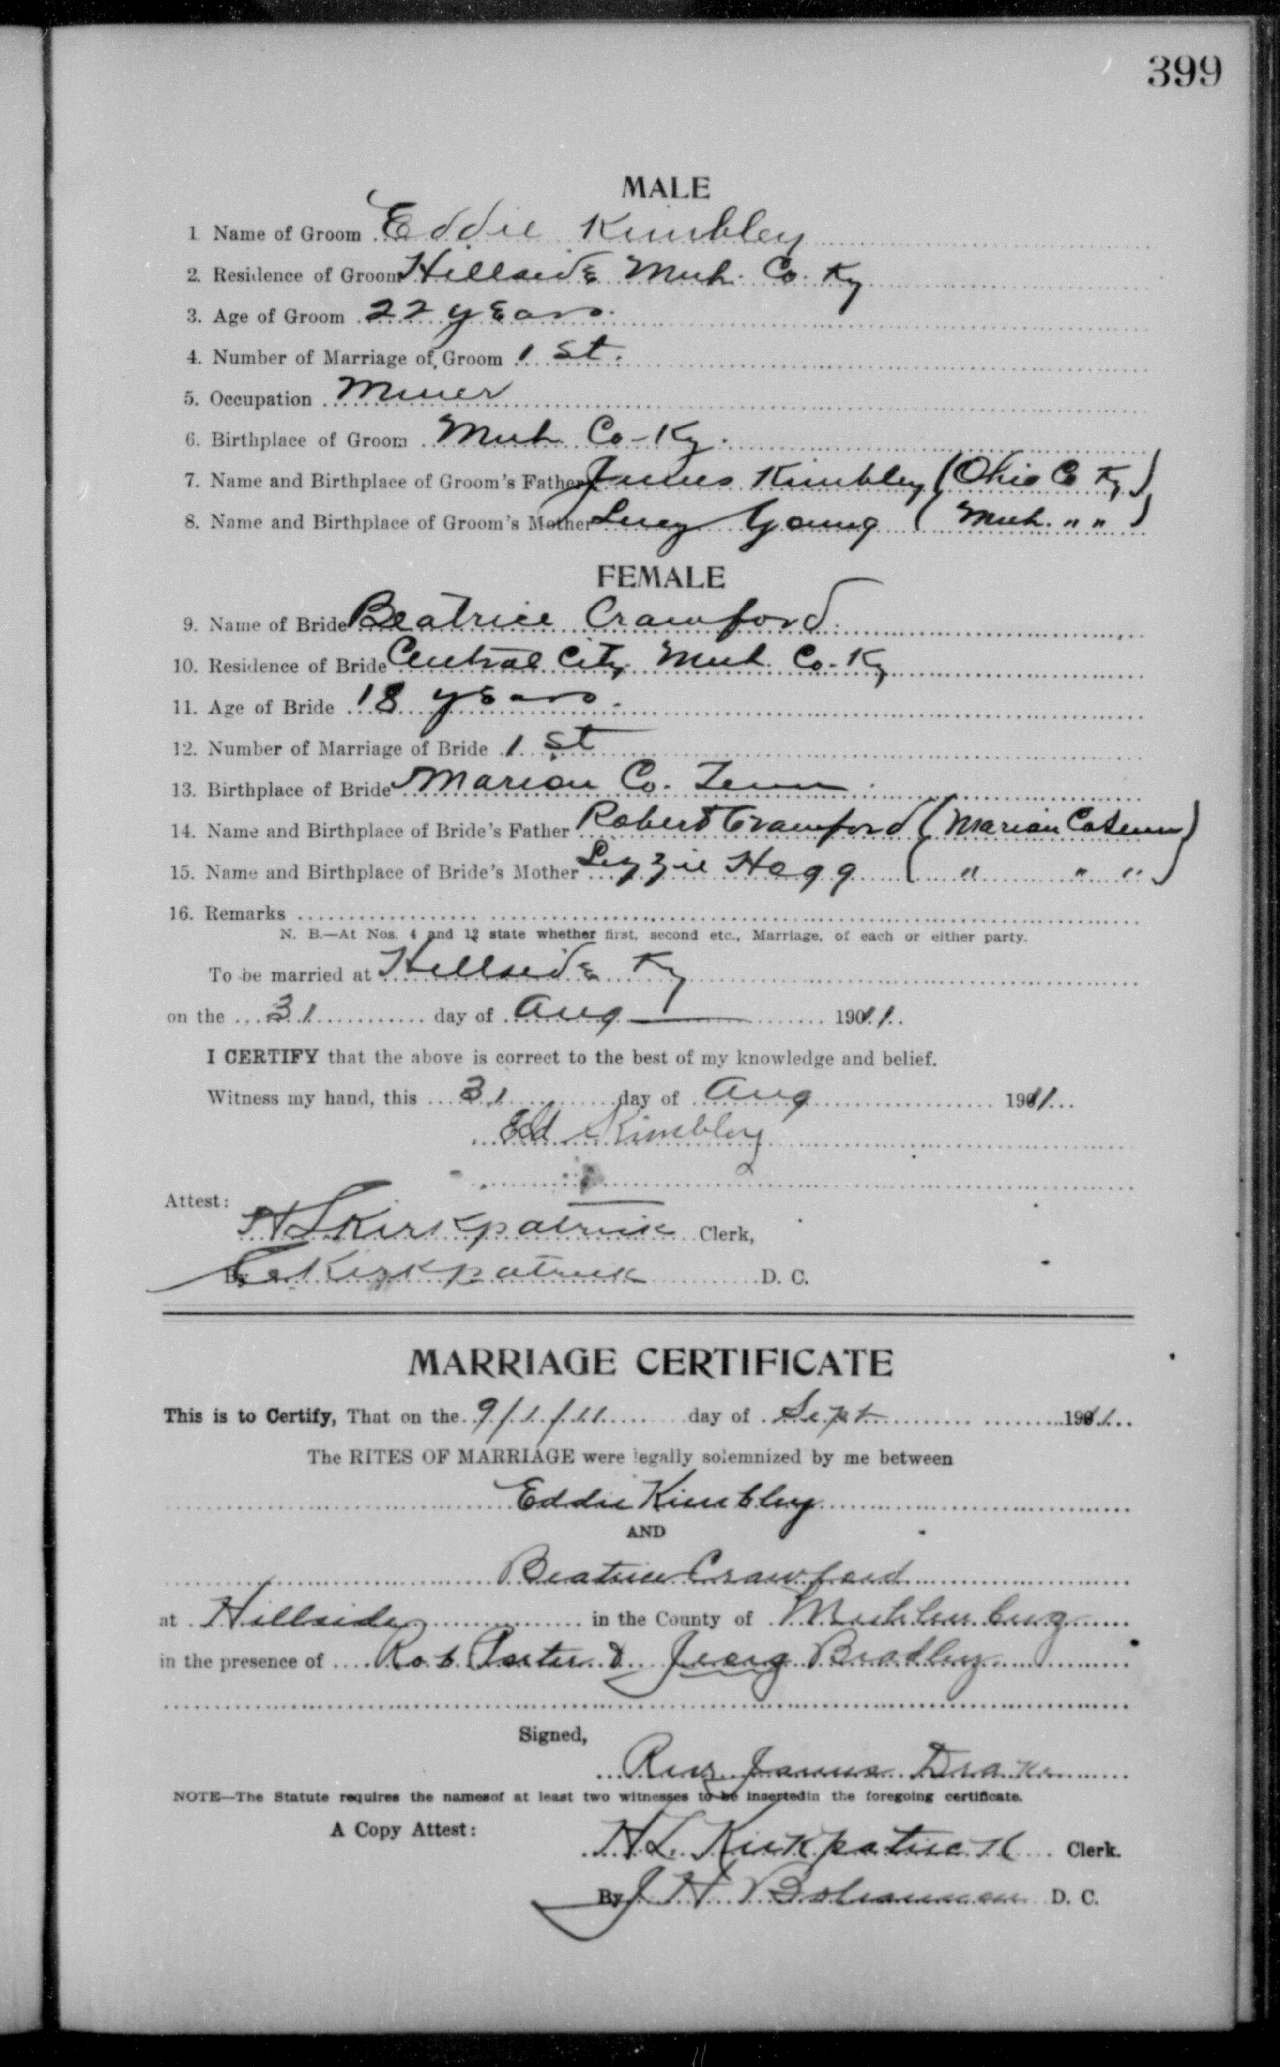 399
MALE
1. Name of Groom Eddie Kimbley
2. Residence of Groom Hillside Muh. Co. Ky
3. Age of Groom 22 years.
4. Number of Marriage of Groom 1 st.
5. Occupation Miner
6. Birthplace of Groom Muh Co-Ky.
7. Name and Birthplace of Groom's Father James Kimbley (Ohio Co Ky)
8. Name and Birthplace of Groom's Mother Lucy Young (Muh. " ")
FEMALE
9. Name of Bride Beatrice Crawford
10. Residence of Bride Central City Muh. Co-Ky
11. Age of Bride 18 years.
12. Number of Marriage of Bride 1 st
13. Birthplace of Bride Marion Co. Tenn
14. Name and Birthplace of Bride's Father Robert Crawford (Marion Co Tenn)
15. Name and Birthplace of Bride's Mother Lizzie Hogg ( " " " )
16. Remarks
N. B.—At Nos. 4 and 12 state whether first, second etc., Marriage, of each or either party.
To be married at Hillside Ky
on the 31 day of Aug 1911.
I CERTIFY that the above is correct to the best of my knowledge and belief.
Witness my hand, this 31 day of Aug 1911
Ed Kimbley
Attest:
H L Kirkpatrick Clerk,
By Kirkpatrick D. C.
MARRIAGE CERTIFICATE
This is to Certify, That on the 9/1/11 day of Sept 1911
The RITES OF MARRIAGE were legally solemnized by me between
Eddie Kimbley
AND
Beatrice Crawford
at Hillside in the County of Muhlenburg
in the presence of Rob Porter & Bradley
Signed,
Drake
NOTE—The Statute requires the namesof at least two witnesses to be insertedin the foregoing certificate.
A Copy Attest:
H L. Kirkpatrick Clerk.
By J H Bohannan D. C.